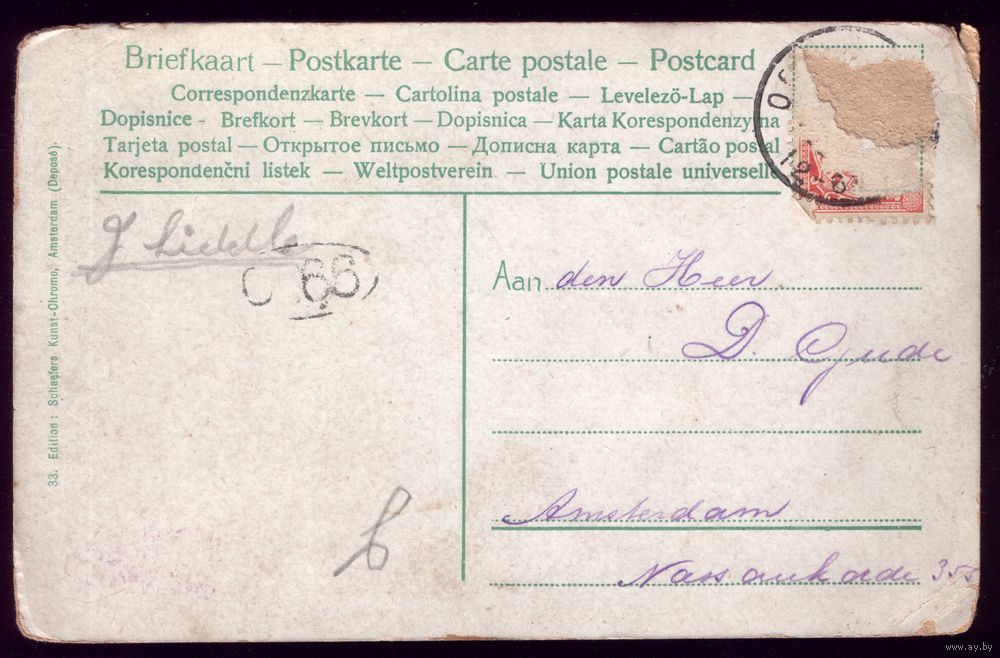 Briefkaart — Postkarte — Carte postale — Postcard
Correspondenzkarte — Cartolina postale — Levelező-Lap —
Dopisnice - Brefkort — Brevkort — Dopisnica — Karta Korespondenzyjna
Tarjeta postal — Открытое письмо — Дописна карта — Cartão postal
Korespondenčni listek — Weltpostverein — Union postale universelle
33. Edition: Schaefers Kunst-Chromo, Amsterdam. (Deposé).
66
Aan den Heer
D. Gude
Amsterdam
Nassaukade 355
6
www.ay.by